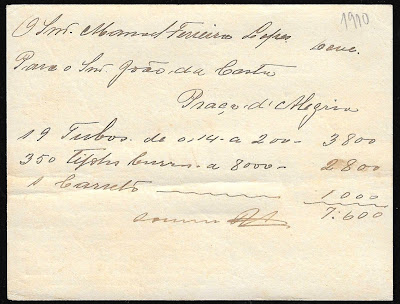 1910
O Snr. Manoel Ferreira Lopes deve
Para o Snr. João da Costa
Praça d'Alegria
19 Tubos de 0,14 a 200 - 3800
350 Tijolos a 8000 - 2800
1 Carreto 1000
7:600